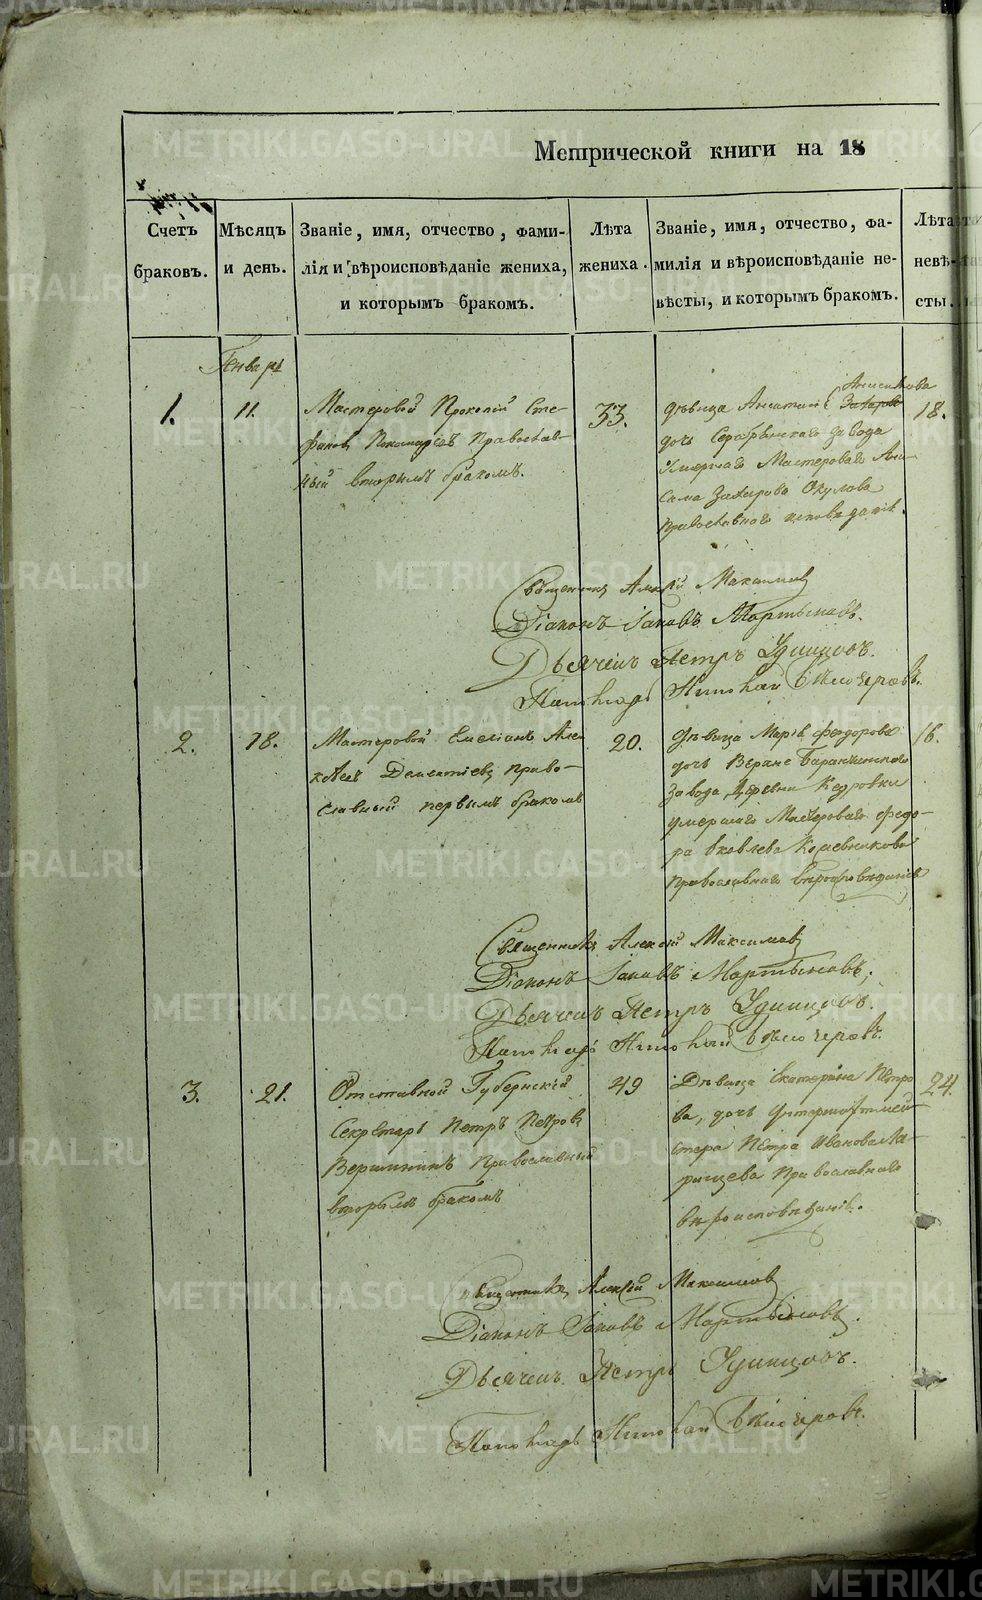 Метрической книги на 18
Счетъ браковъ.
Мѣсяцъ и день.
Званіе, имя, отчество, фами-
лія и вѣроисповѣданіе жениха,
и которымъ бракомъ.
Лѣта жениха.
Званіе, имя, отчество, фа-
милія и вѣроисповѣданіе не-
вѣсты, и которымъ бракомъ.
Лѣта невѣ-
сты.
Генваря
1.
11.
Мастеровой Прокопій Сте-
фановъ Православ-
ный вторымъ бракомъ.
33.
дѣвица Анисимова
дочь Серебрянскаго завода
Умершаго Мастероваго Ани-
сима Захарова Окулова
Православнаго исповѣданія.
18.
Священникъ Алексій Максимовъ
Діаконъ Іаковъ Мартыновъ.
Дьячекъ Петръ Удинцовъ.
Пономарь Николай
2.
18.
Мастеровой Емеліанъ Але-
ксѣевъ Дементіевъ право-
славный первымъ бракомъ
20.
Дѣвица Марія Феодорова
дочь Верхне Баранчинскаго
завода, Деревни Кедровки
умершаго Мастероваго Федо-
ра Яковлева Кожевникова
Православнаго вѣроисповѣданія
16.
Священникъ Алексій Максимовъ
Діаконъ Іаковъ Мартыновъ,
Дьячекъ Петръ Удинцовъ.
Пономарь Николай
3.
21.
Отставной Губернскій
Секретарь Петръ Петровъ
Вершининъ Православный
вторымъ бракомъ
49
Дѣвица Екатерина Петро
ва, дочь Унтершихтмей
стера Петра Иванова
Православнаго
вѣроисповѣданія.
24.
Священникъ Алексій Максимовъ
Діаконъ Іаковъ Мартыновъ.
Дьячекъ Петръ Удинцовъ.
Пономарь Николай
METRIKI.GASO-URAL.RU